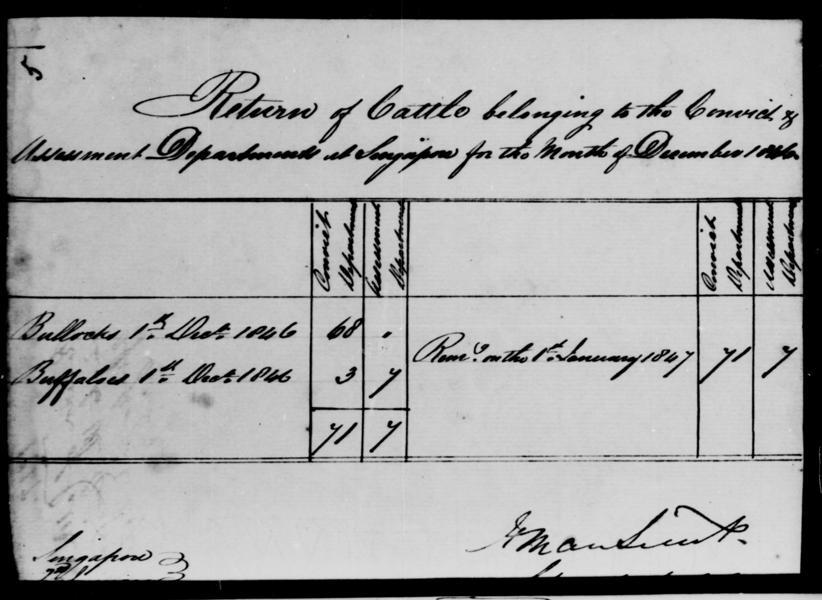 5
Return of Cattle belonging to the Convict &
Assessment Departments at Singapore for the Month of December 1846
Convict Department
Assessment Department
Convict Department
Assessment Department
Bullocks 1st Decr 1846 68 "
Buffaloes 1st Decr 1846 3 7
71 7
Remg. on the 1st January 1847 71 7
Singapore